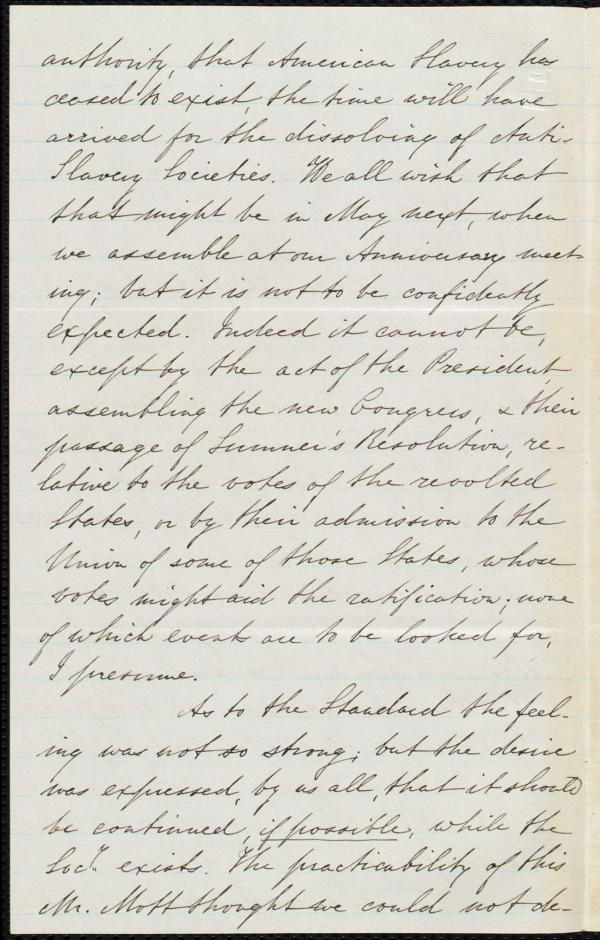 authority, that American Slavery has
ceased to exist, the time will have
arrived for the dissolving of Anti-
Slavery Societies. We all wish that
that might be in May next, when
we assemble at our Anniversary meet-
ing; but it is not to be confidently
expected. Indeed it cannot be,
except by the act of the President
assembling the new Congress, & their
passage of Sumner's Resolution, re-
lative to the votes of the revolted
States, or by their admission to the
Union of some of those States, whose
votes might aid the ratification; none
of which events are to be looked for,
I presume.
As to the Standard the feel-
ing was not so strong; but the desire
was expressed, by us all, that it should
be continued, if possible, while the
Socy. exists. The practicability of this
Mr. Mott thought we could not de-